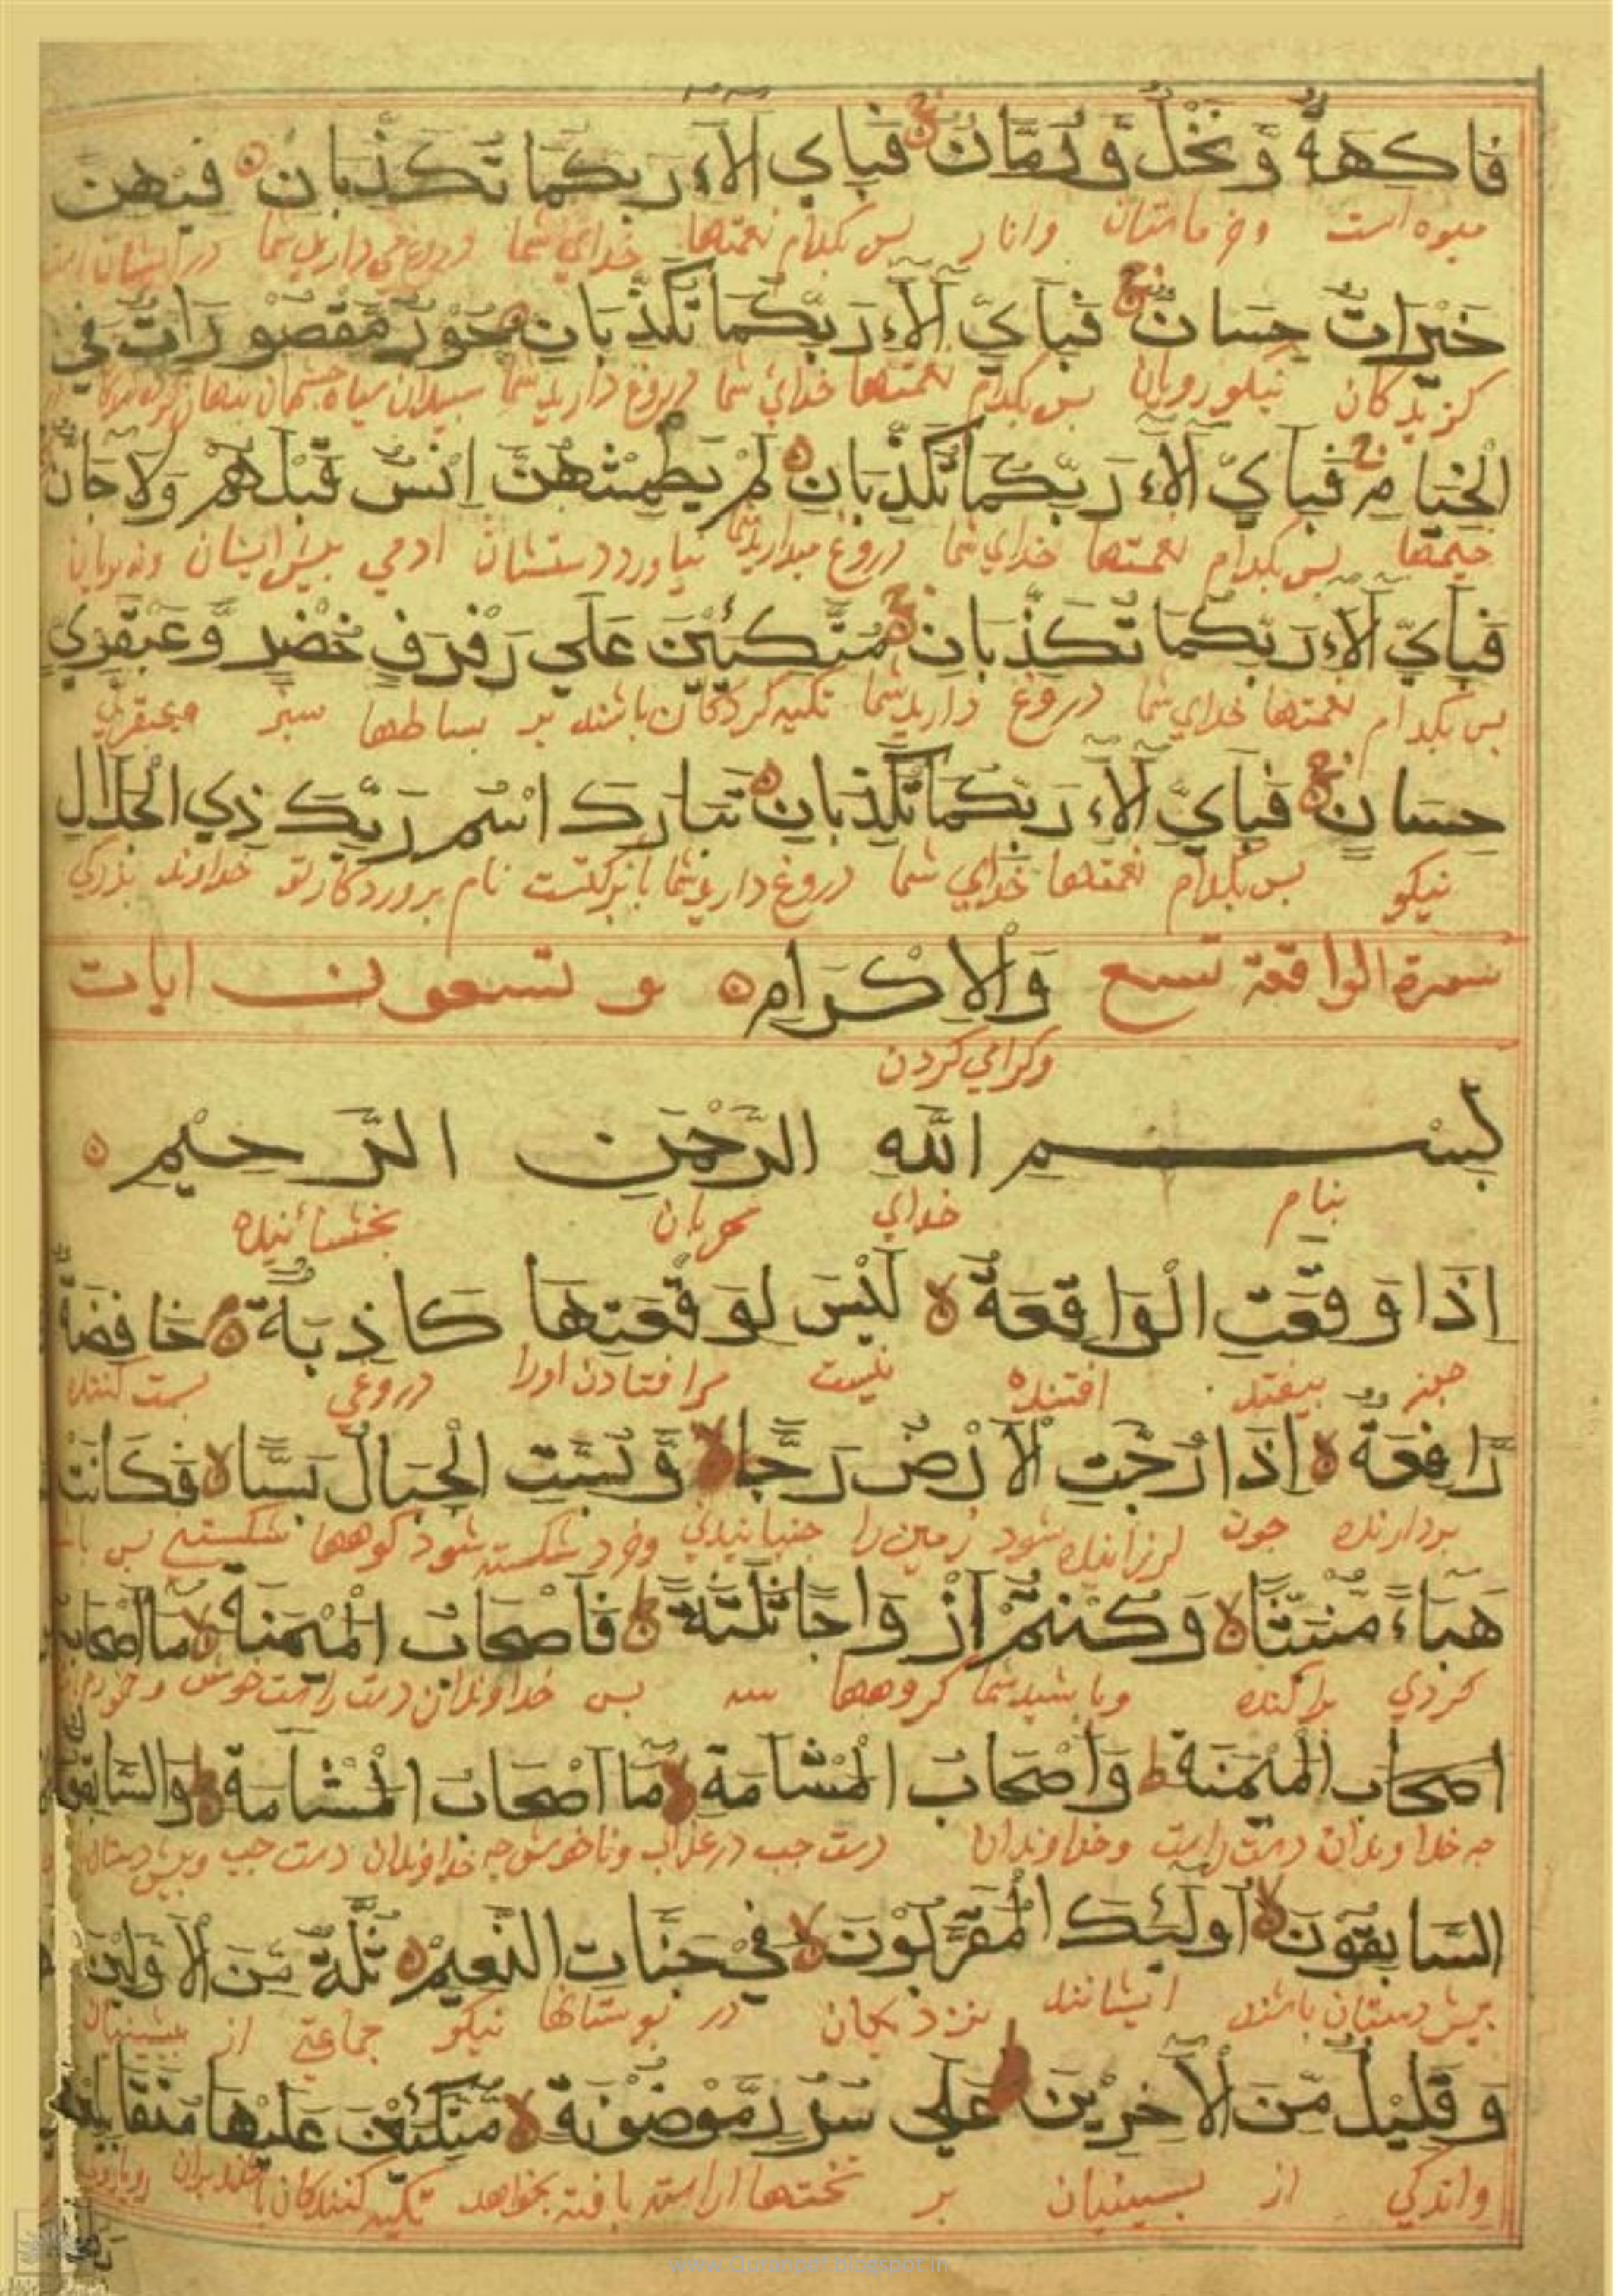 فاكهة و نخل و رمان فباي الاء ربكما تكذبان فيهن
ميوه است وخرماستان وانار پس بكدام نعمتها خداي شما دروغ مي داريد شما در ايشان است
خيرات حسان فباي الاء ربكما تكذبان حور مقصورات في
كزيدكان نيكورويان پس بكدام نعمتها خداي شما دروغ داريد شما سپيدان سياه چشمان
الخيام فباي الاء ربكما تكذبان لم يطمثهن انس قبلهم ولا جان
خيمتها پس بكدام نعمتها خداي شما دروغ ميداريد شما ادمي پيش ايشان ونه پريان
فباي الاء ربكما تكذبان متكئين علي رفرف خضر و عبقري
پس بكدام نعمتها خداي شما دروغ داريد شما تكيه كردكان باشند بر بساطها سبز
حسان فباي الاء ربكما تكذبان تبارك اسم ربك ذي الجلال
نيكو پس بكدام نعمتها خداي شما دروغ داريد شما نام پروردكار تو خداوند بزركي
سورة الواقعة تسع والاكرام و تسعون ايات
وكرامي كردن
بسم الله الرحمن الرحيم
بنام خداي مهربان بخشاينده
اذا وقعت الواقعة ليس لوقعتها كاذبة خافضة
چون بيفتد افتنده نيست مرافتادن اورا دروغي پست كننده
رافعة اذا رجت الارض رجا و بست الجبال بسا فكانت
بردارنده چون لرزانيده شود زمين را جنبانيدني وخرد شكسته شود كوهها شكستني پس
هباء منبثا وكنتم ازواجا ثلثة فاصحاب الميمنة ما اصحاب
كردي پراكنده وباشيد شما كروهها سه پس خداوندان دست راست خوش
اصحاب الميمنة واصحاب المشامة ما اصحاب المشامة والسابقون
چه خداوندان دست راست وخداوندان دست چپ در عذاب وناخوش چه خداوندان دست چپ وپيش دستان
السابقون اولئك المقربون في جنات النعيم ثلة من الاولين
پيش دستان باشند ايشانند نزديكان در بوستانها نيكو جماعتي از پيشينيان
و قليل من الاخرين علي سرر موضونة متكئين عليها متقابلين
واندكي از پسينيان بر تختها اراسته بافته تكيه كنندكان
www.Quranpdf.blogspot.in